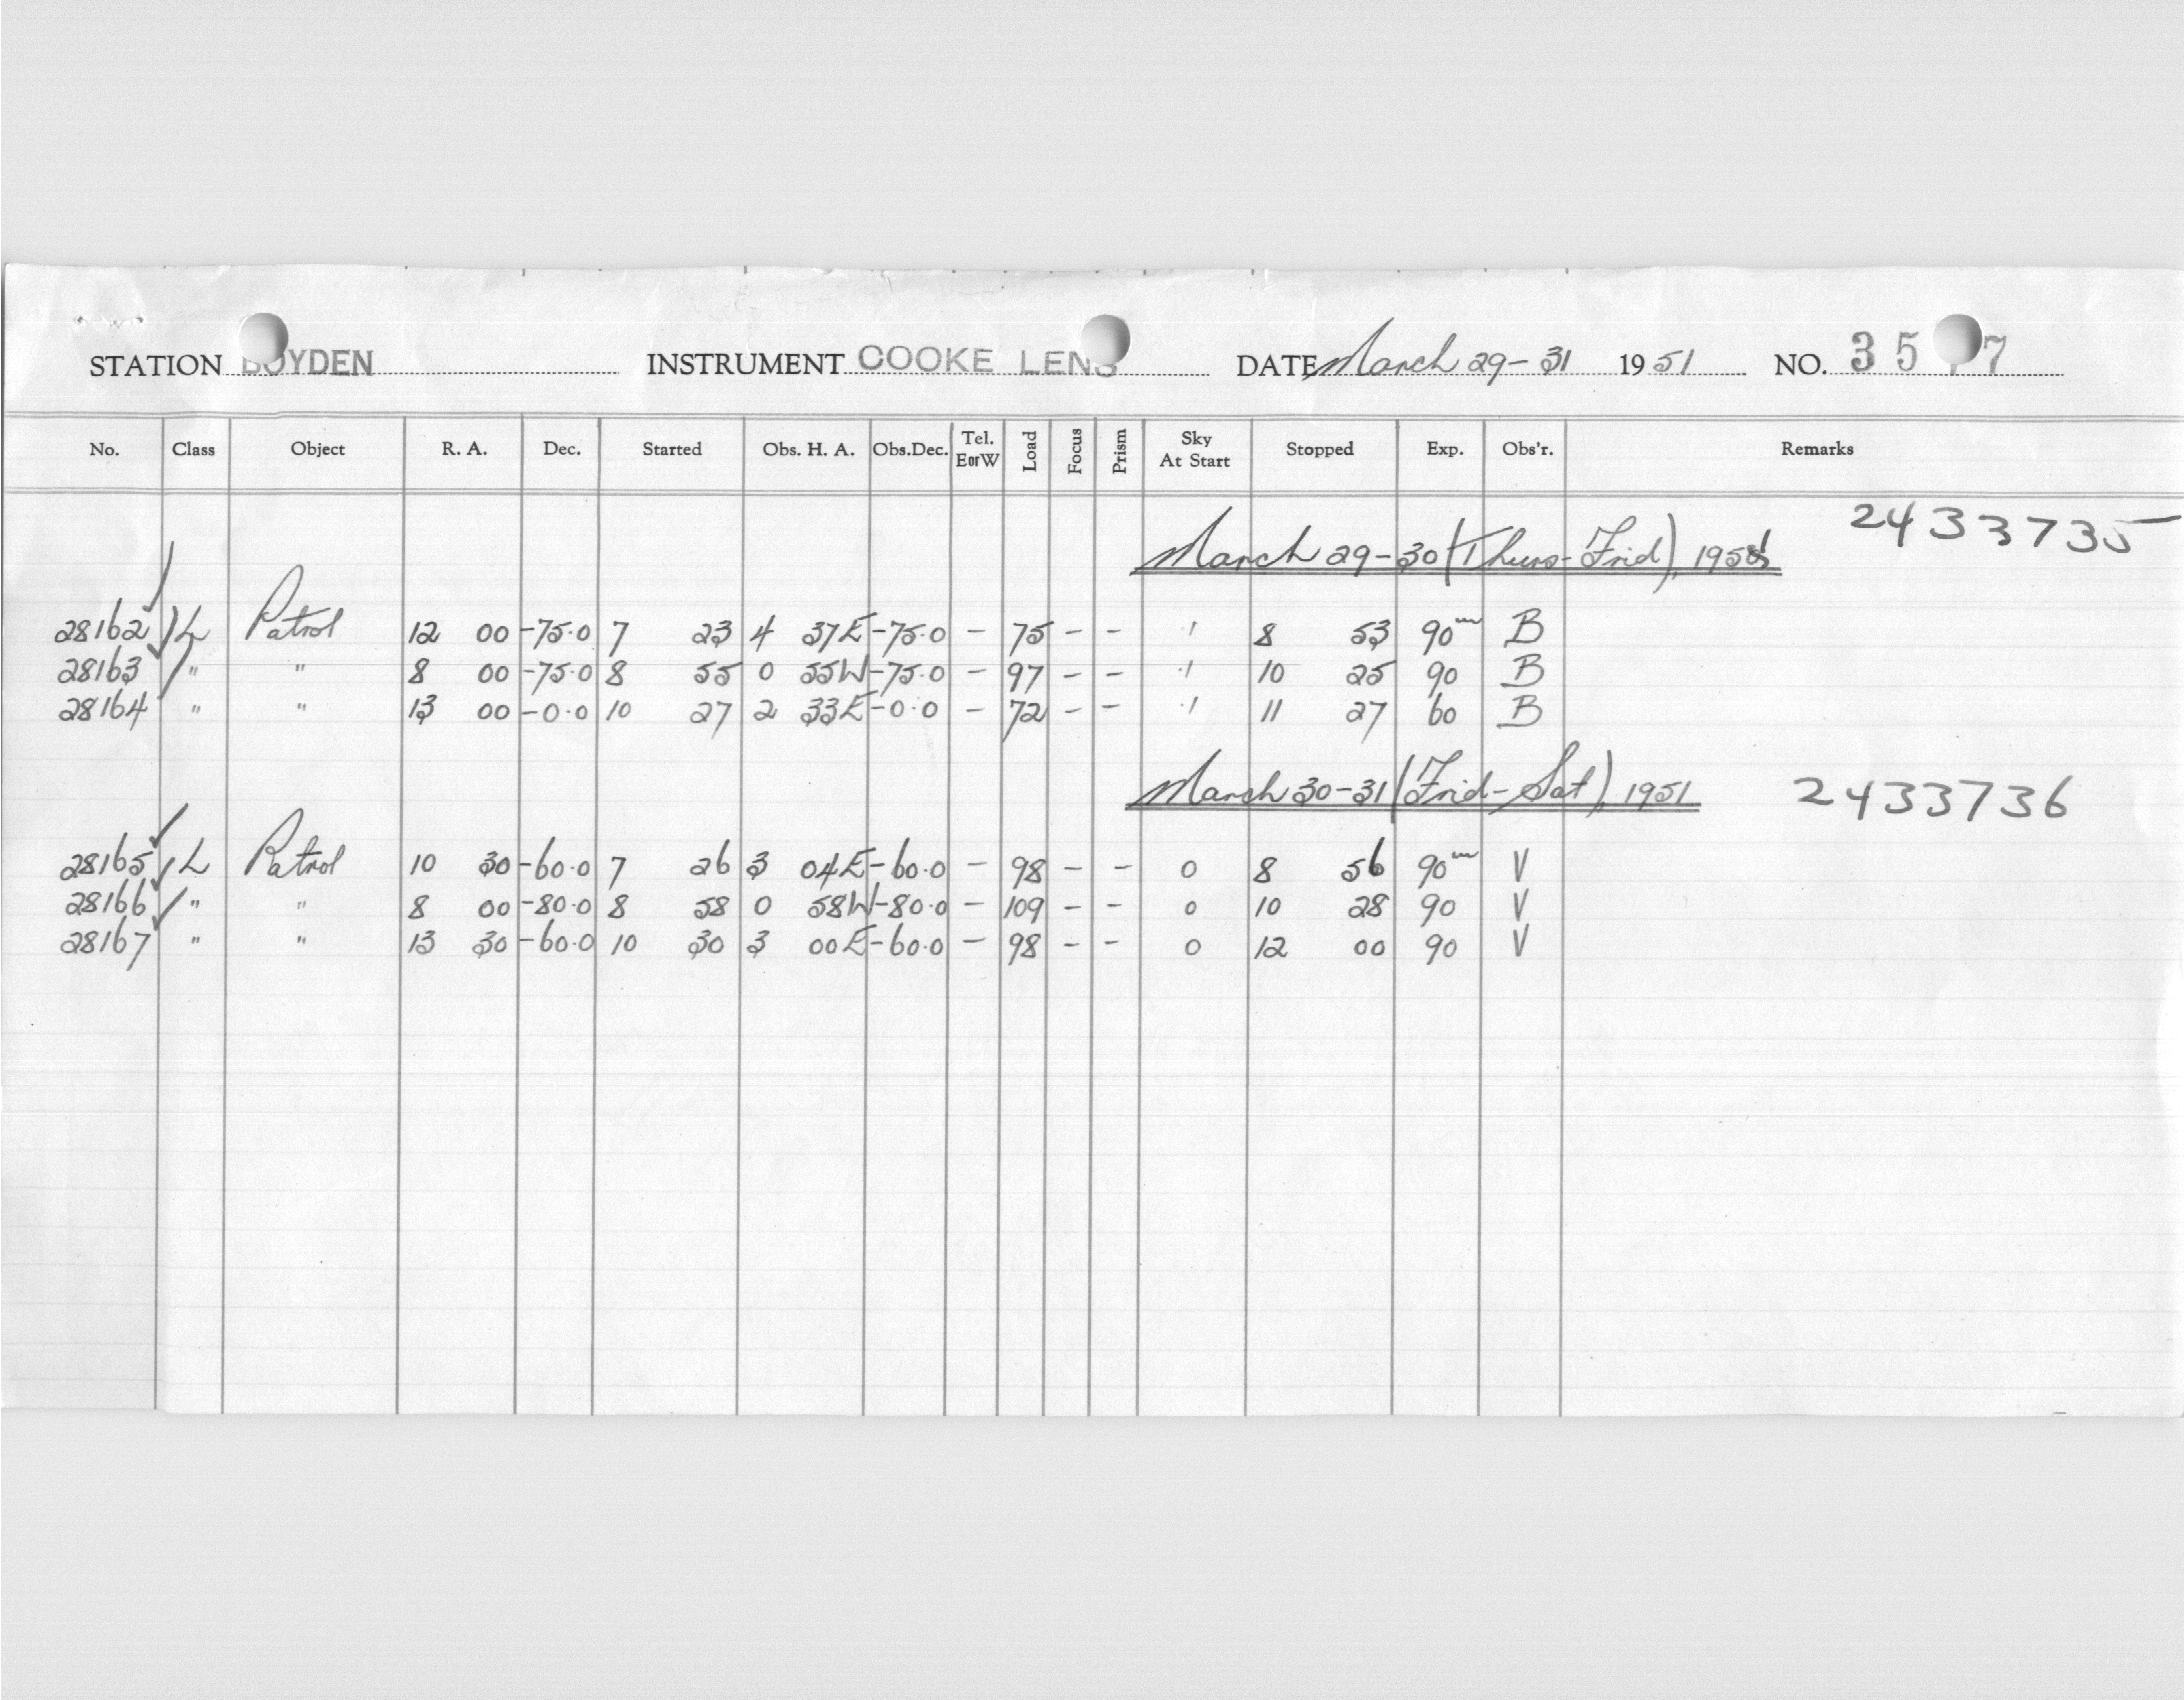 STATION BOYDEN INSTRUMENT COOKE LENS DATE March 29-31 1951 NO. 35 7
No. Class Object R. A. Dec. Started Obs. H. A. Obs.Dec. Tel. EorW Load Focus Prism Sky At Start Stopped Exp. Obs'r. Remarks
2433735
March 29-30 (Thurs-Frid), 1951
28162 L Patrol 12 00 -75.0 7 23 4 37E -75.0 - 75 - - .1 8 53 90m B
28163 " " 8 00 -75.0 8 55 0 55W -75.0 - 97 - - .1 10 25 90 B
28164 " " 13 00 -0.0 10 27 2 33E -0.0 - 72 - - .1 11 27 60 B
March 30-31 (Frid-Sat), 1951 2433736
28165 L Patrol 10 30 -60.0 7 26 3 04E -60.0 - 98 - - 0 8 56 90m V
28166 " " 8 00 -80.0 8 58 0 58W -80.0 - 109 - - 0 10 28 90 V
28167 " " 13 30 -60.0 10 30 3 00E -60.0 - 98 - - 0 12 00 90 V